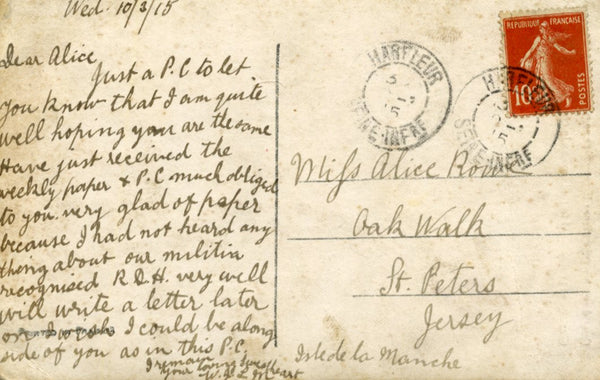 Wed. 10/3/15
Dear Alice
Just a P.C to let
you know that I am quite
well hoping you are the same
Have just received the
weekly paper & P.C much obliged
to you very glad of paper
because I had not heard any
thing about our militia
recognised R.D.H. very well
will write a letter later
on I wish I could be along
side of you as in this P.C.
I remain
your loving
HARFLEUR
SEINE-INFRE
REPUBLIQUE FRANÇAISE
10
POSTES
HARFLEUR
SEINE-INFRE
Miss Alice
Oak Walk
St. Peters
Jersey
Isle de la Manche